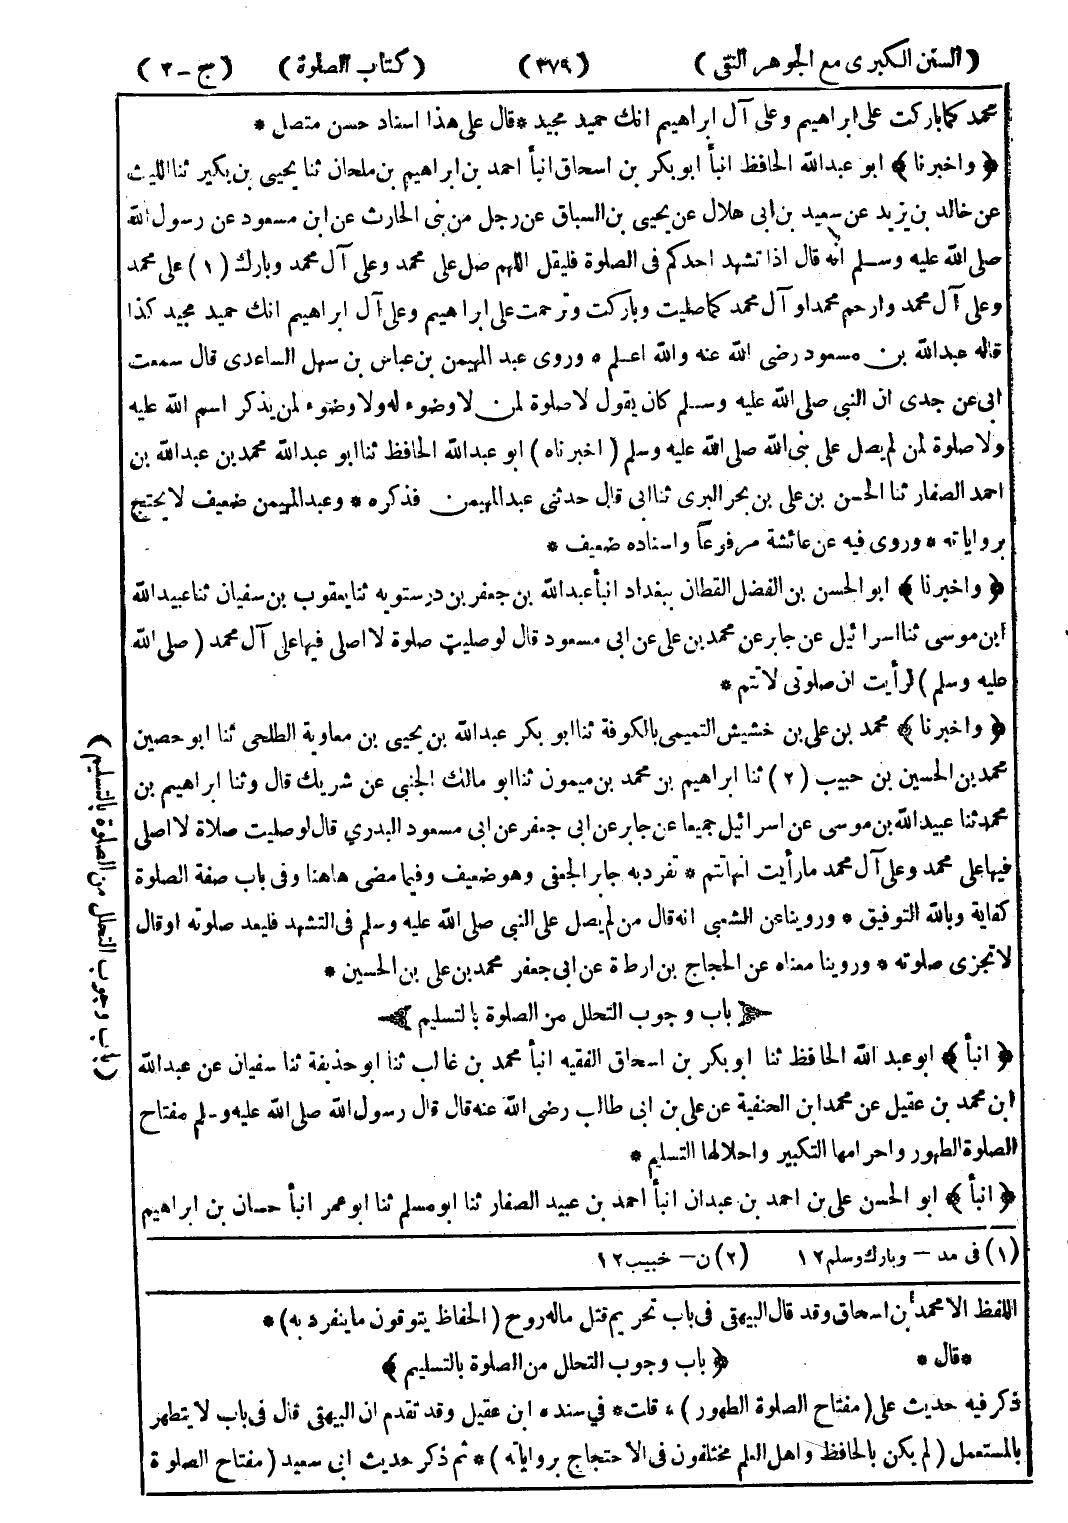 (السنن الكبرى مع الجوهر النقى) (٣٧٩) (كتاب الصلوة) (ج-٢)
محمد كما باركت على ابراهيم وعلى آل ابراهيم انك حميد مجيد *قال على هذا اسناد حسن متصل *
﴿ واخبرنا ﴾ ابو عبدالله الحافظ انبأ ابوبكر بن اسحاق انبأ احمد بن ابراهيم بن ملحان ثنا يحيى بن بكير ثنا الليث
عن خالد بن يزيد عن سعيد بن ابى هلال عن يحيى بن السباق عن رجل من بنى الحارث عن ابن مسعود عن رسول الله
صلى الله عليه وسلم انه قال اذا تشهد احدكم فى الصلوة فليقل اللهم صل على محمد وعلى آل محمد وبارك (١) على محمد
وعلى آل محمد وارحم محمدا و آل محمد كما صليت وباركت وترحمت على ابراهيم وعلى آل ابراهيم انك حميد مجيد كذا
قاله عبدالله بن مسعود رضى الله عنه والله اعلم * وروى عبد المهيمن بن عباس بن سهل الساعدى قال سمعت
ابى عن جدى ان النبى صلى الله عليه وسلم كان يقول لا صلوة لمن لا وضوء له ولا وضوء لمن يذكر اسم الله عليه
ولا صلوة لمن لم يصل على نبى الله صلى الله عليه وسلم (اخبرناه) ابو عبدالله الحافظ ثنا ابو عبدالله محمد بن عبدالله بن
احمد الصفار ثنا الحسن بن على بن بحر البرى ثنا ابى قال حدثنى عبدالمهيمن فذكره * وعبدالمهيمن ضعيف لا يحتج
برواياته * وروى فيه عن عائشة مرفوعاً واسناده ضعيف *
﴿ واخبرنا ﴾ ابو الحسن بن الفضل القطان ببغداد انبأ عبدالله بن جعفر بن درستويه ثنا يعقوب بن سفيان ثنا عبيدالله
ابن موسى ثنا اسرائيل عن جابر عن محمد بن على عن ابى مسعود قال لو صليت صلوة لا اصلى فيها على آل محمد (صلى الله
عليه وسلم) لرأيت ان صلوتى لا تتم *
﴿ واخبرنا ﴾ محمد بن على بن خشيش التميمى بالكوفة ثنا ابو بكر عبدالله بن يحيى بن معاوية الطلحى ثنا ابو حصين
محمد بن الحسين بن حبيب (٢) ثنا ابراهيم بن محمد بن ميمون ثنا ابو مالك الجنبى عن شريك قال وثنا ابراهيم بن
محمد ثنا عبيدالله بن موسى عن اسرائيل جميعا عن جابر عن ابى جعفر عن ابى مسعود البدري قال لو صليت صلاة لا اصلى
فيها على محمد وعلى آل محمد ما رأيت انها تتم * تفرد به جابر الجعفى وهو ضعيف وفيما مضى هاهنا وفى باب صفة الصلوة
كفاية وبالله التوفيق * وروينا عن الشعبى انه قال من لم يصل على النبى صلى الله عليه وسلم فى التشهد فليعد صلوته او قال
لا تجزى صلوته * وروينا معناه عن الحجاج بن ارطاة عن ابى جعفر محمد بن على بن الحسين *
﴿ باب وجوب التحلل من الصلوة بالتسليم ﴾
﴿ انبأ ﴾ ابو عبد الله الحافظ ثنا ابو بكر بن اسحاق الفقيه انبأ محمد بن غالب ثنا ابو حذيفة ثنا سفيان عن عبدالله
ابن محمد بن عقيل عن محمد ابن الحنفية عن على بن ابى طالب رضى الله عنه قال قال رسول الله صلى الله عليه وسلم مفتاح
الصلوة الطهور واحرامها التكبير واحلالها التسليم *
﴿ انبأ ﴾ ابو الحسن على بن احمد بن عبدان انبأ احمد بن عبيد الصفار ثنا ابو مسلم ثنا ابو عمر انبأ حسان بن ابراهيم
(باب وجوب التحلل من الصلوة بالتسليم)
(١) فى مد - وبارك وسلم ١٢ (٢) ن - خبيب ١٢
اللفظ الا محمد بن اسحاق وقد قال البيهقى فى باب تحريم قتل ما له روح (الحفاظ يتوقون ما ينفرد به) *
*قال * ﴿ باب وجوب التحلل من الصلوة بالتسليم ﴾
ذكر فيه حديث على (مفتاح الصلوة الطهور) * قلت * في سنده ابن عقيل وقد تقدم ان البيهقى قال فى باب لا يتطهر
بالمستعمل (لم يكن بالحافظ واهل العلم مختلفون فى الاحتجاج برواياته) * ثم ذكر حديث ابى سعيد (مفتاح الصلوة